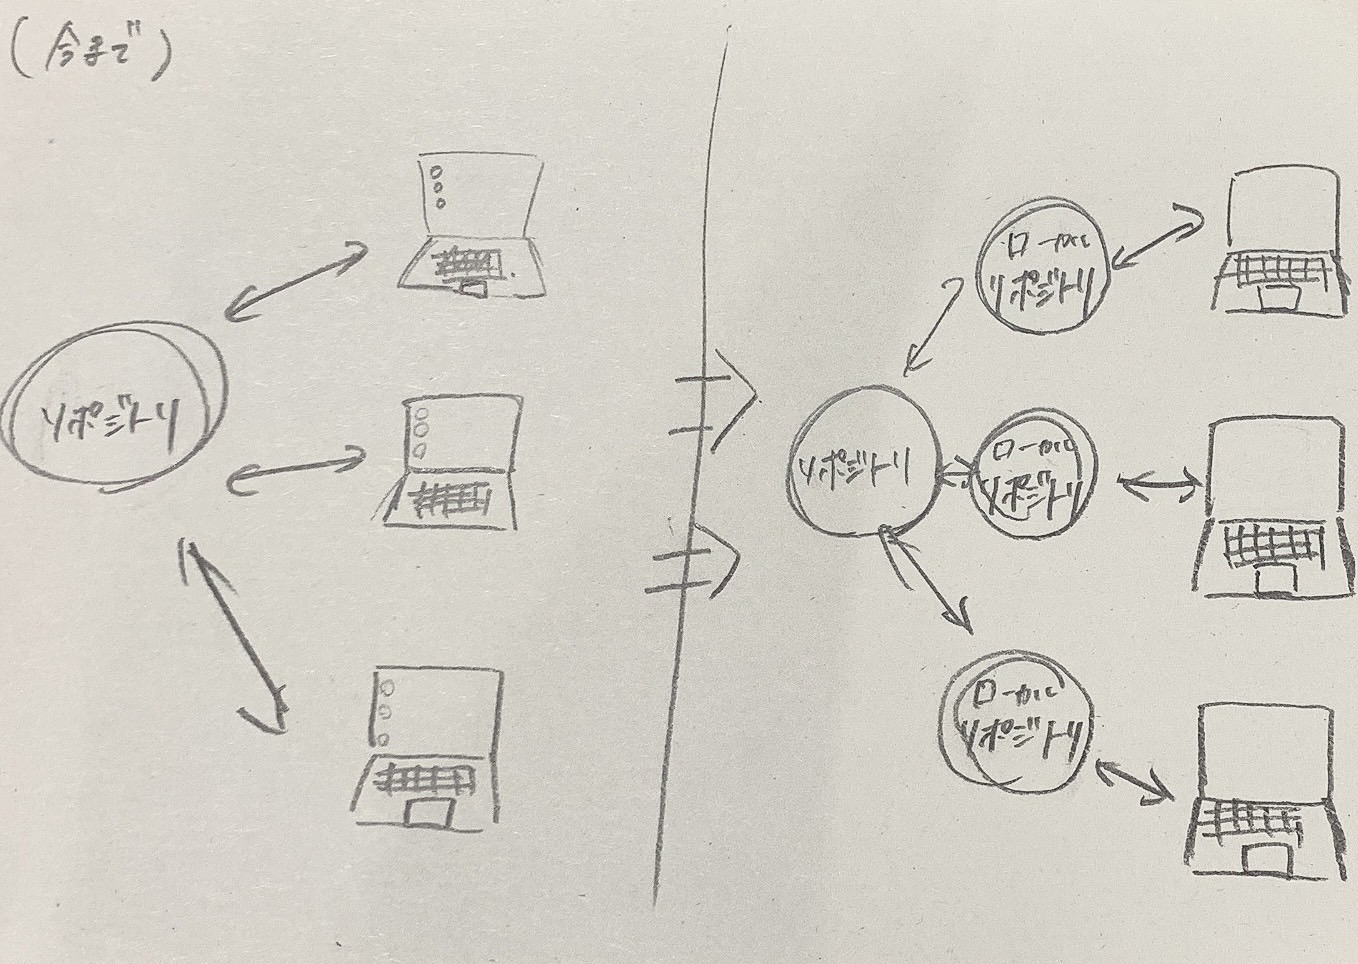 (今まで)
リポジトリ
ローカル
リポジトリ
リポジトリ
ローカル
リポジトリ
ローカル
リポジトリ